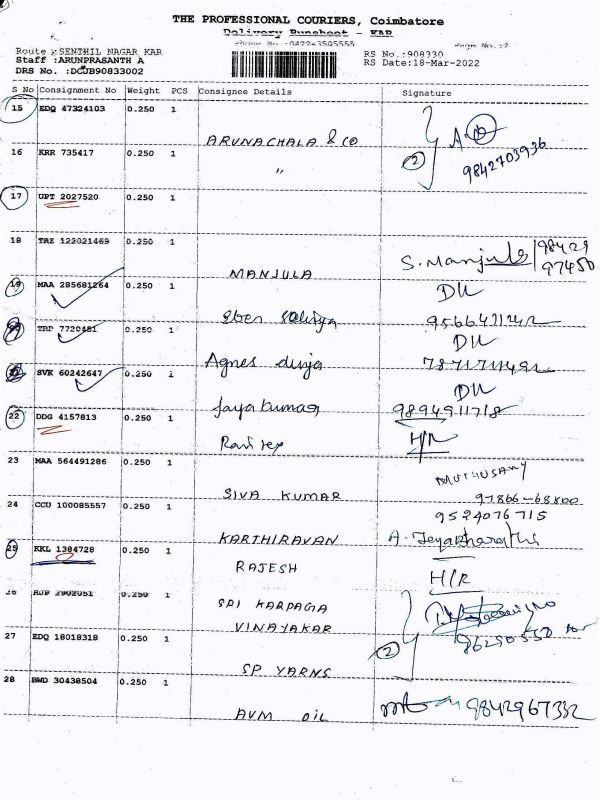 THE PROFESSIONAL COURIERS, Coimbatore
Delivery Runsheet - KAR
Phone No. :0422-3505555
Page No. :2
Route :SENTHIL NAGAR KAR
RS No.:908330
Staff :ARUNPRASANTH A
RS Date:18-Mar-2022
DRS No. :DCJB90833002
S No Consignment No Weight PCS Consignee Details Signature
15 EDQ 47324103 0.250 1
ARUNACHALA & CO
(2) 9842703936
16 KRR 735417 0.250 1
"
17 UPT 2027520 0.250 1
18 TRZ 122021469 0.250 1
MANJULA
S. Manjula 98429
97450
19 MAA 285681264 0.250 1
DU
9566471242
20 TRP 7720481 0.250 1
Agnes
DU
21 SVK 60242647 0.250 1
Jayakumar
DU
9894911718
22 DDG 4157813 0.250 1
H/R
23 MAA 564491286 0.250 1
SIVA KUMAR
MUTHUSAMY
97866-68800
24 CCU 100085557 0.250 1
KARTHIRAVAN
9524076715
25 KKL 1384728 0.250 1
RAJESH
H/R
26 0.250 1
SRI KARPAGA
VINAYAKAR
27 EDQ 18018318 0.250 1
SP YARNS
(2)
28 BWD 30438504 0.250 1
AVM OIL
9842967332